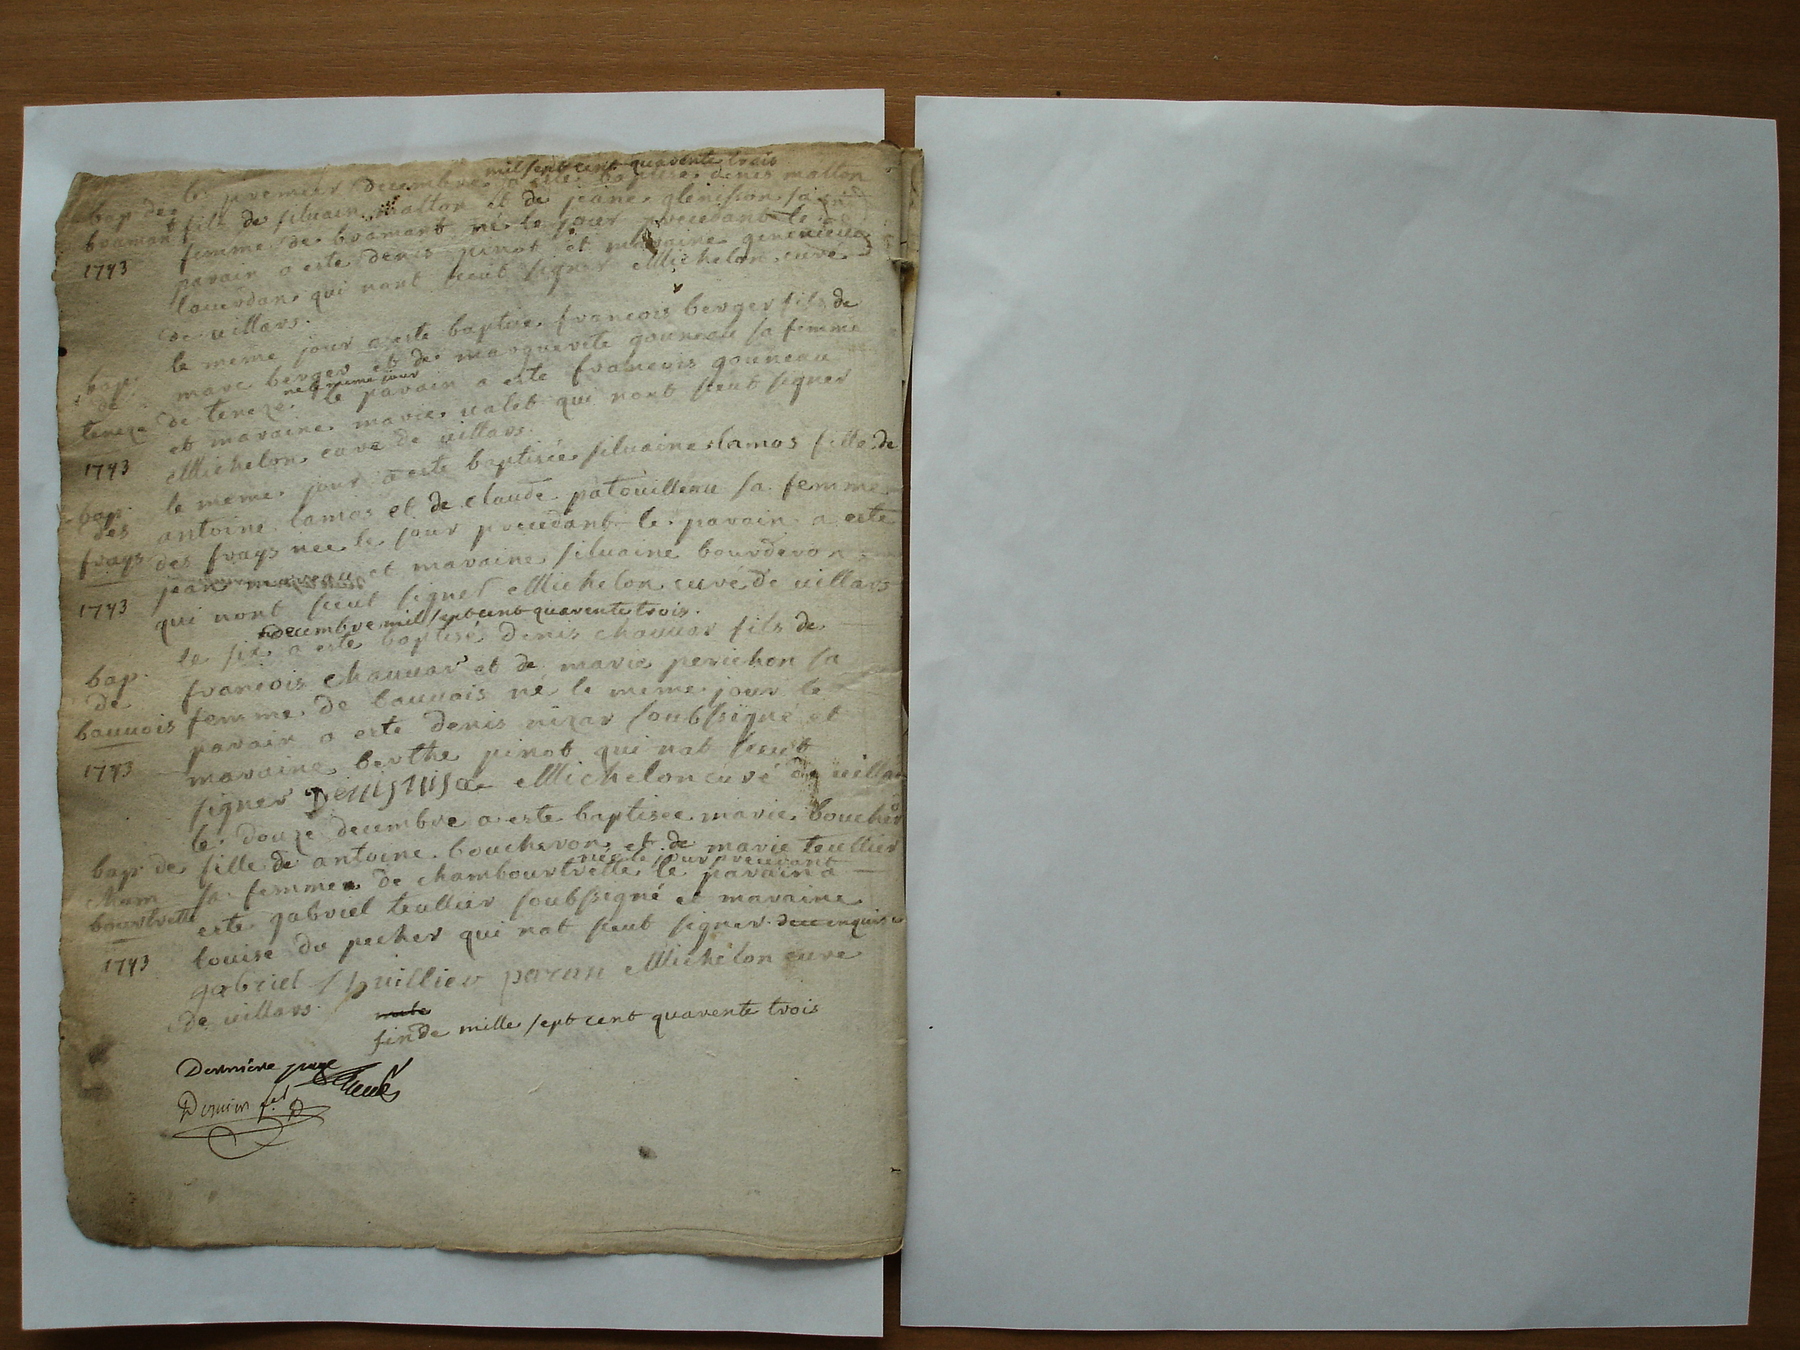 mil sept cent quarente trois
le premier decembre a este baptisé denis matton
bap de fils de siluain matton et de jeane glenisson sa
bramant femme de bramant né le jour precedant le
1743 parain a este denis pinot et maraine genevieve
lauerdan qui nont sceut signer Michelon curé
de uillars.
le meme jour a este baptisé francois berger fils de
bap. marc berger et de marguerite gouneau sa femme
né le meme jour
de de teneze le parain a este francois gouneau
teneze et maraine marie ualet qui nont sceut signer
1743 Michelon curé de uillars.
le meme jour a este baptisée siluaine lamos fille de
bap. antoine lamos et de claude patouilleau sa femme
des
frays des frays nee le jour precedant le parain a este
jean mareau et maraine siluaine bourderon
1743 qui nont sceut signer Michelon curé de uillars
decembre mil sept cent quarente trois.
le six a este baptisé denis chauuar fils de
bap. francois chauuar et de marie perichon sa
de femme de bauuois né le meme jour le
bauuois parain a este denis nizar soubsigné et
1743 maraine berthe pinot qui nat sceut
signer Denis nisar Michelon curé de uillars
le douze decembre a este baptisee marie boucheron
bap de fille de antoine boucheron et de marie teullier
née le jour precedant
cham sa femme de chambourtrette le parain a
bourtrette este gabriel teullier soubsigné et maraine
louise du pecher qui nat sceut signer de ce enquise
1743 gabriel thuillier paran Michelon curé
de uillars.
fin de mille sept cent quarente trois
Dernière page
Dernier f.et